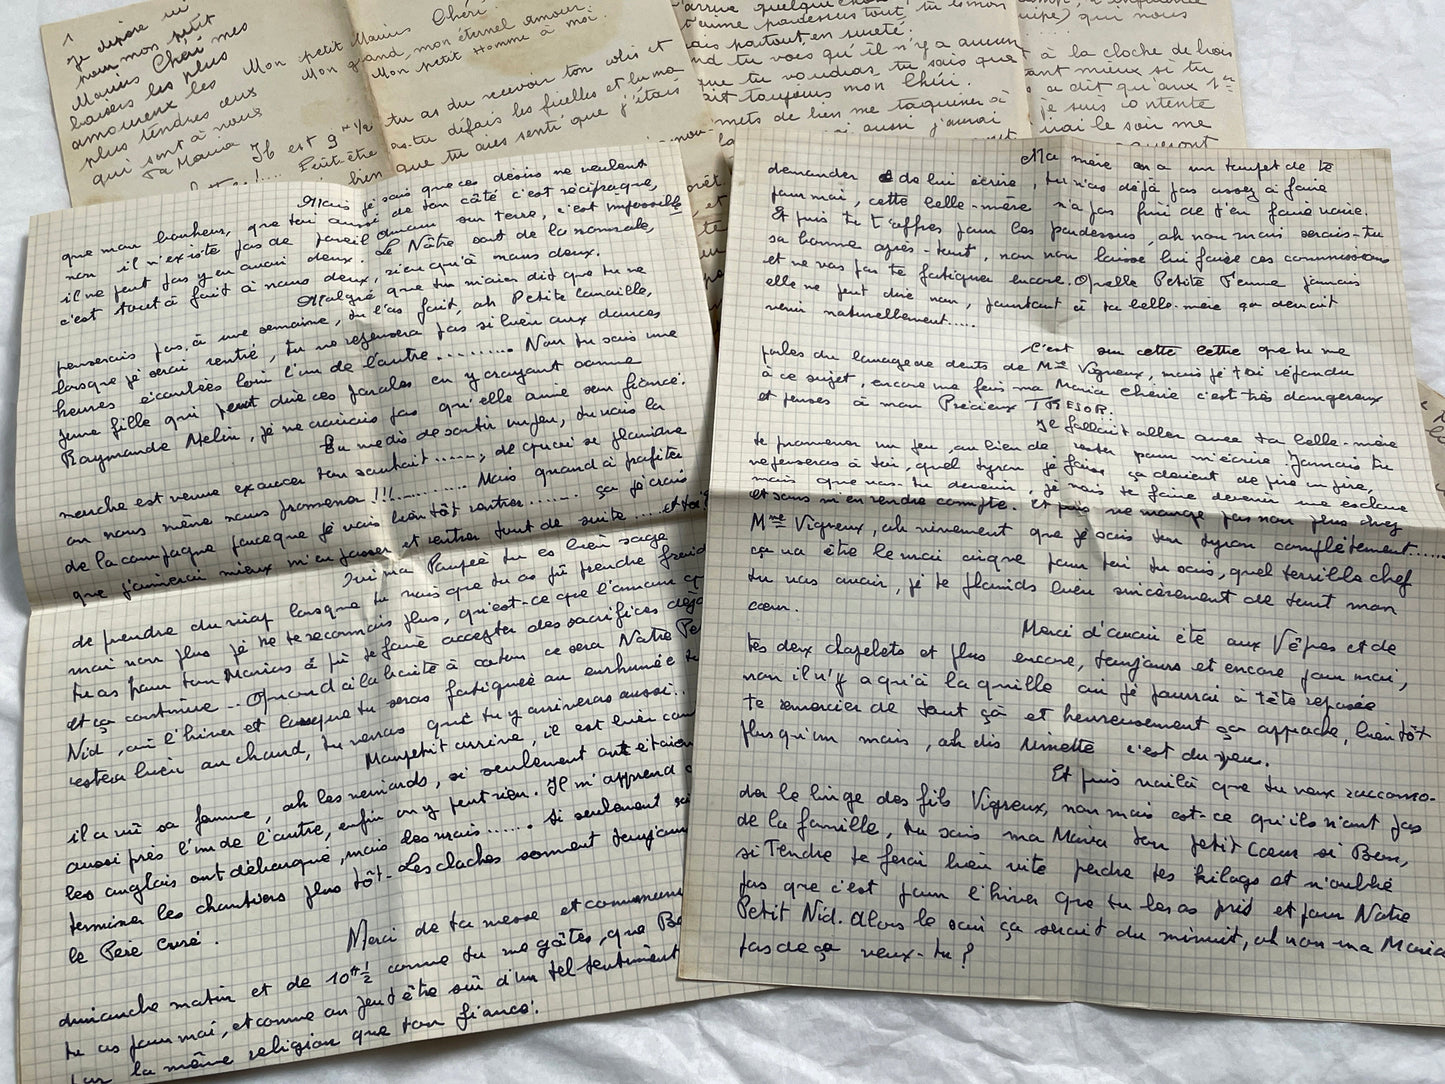 1
je dépose ici
pour mon petit
Marius Chéri mes
baisers les plus
amoureux les
plus tendres ceux
qui sont à nous
Ta Maria
Mon petit Marius Chéri
Mon grand, mon éternel amour
Mon petit Homme à moi.
Il est 9 H 1/2
tu as du recevoir ton colis et
as-tu défais les ficelles et lu ma
que tu aies senti que j'étais
Peut-être
bien
t'aime pardessus tout, tu es mon
mais partout en sureté;
tu vois qu'il n'y a aucun
que tu voudras, tu sais que
toujours mon Chéri.
mets de bien me taquiner à
aussi j'aurai
qui nous
à la cloche de bois
tant mieux si tu
a dit qu'aux 1er
je suis contente
irai le soir me
Mais je sais que ces désirs ne veulent
que mon bonheur, que toi aussi de ton côté c'est réciproque,
non il n'existe pas de pareil amour sur terre, c'est impossible
il ne peut pas y en avoir deux. Le Nôtre sort de la normale,
c'est tout à fait à nous deux, rien qu'à nous deux.
Malgré que tu m'aies dit que tu ne
penserais pas à une semaine, tu l'as fait, ah Petite canaille,
lorsque je serai rentré, tu ne repensera pas si bien aux douces
heures écoulées loin l'un de l'autre......... Non tu sais une
jeune fille qui peut dire ces paroles en y croyant comme
Raymonde Melin, je ne croirais pas qu'elle aime son fiancé.
Tu me dis de sortir un peu, tu vois la
marche est venue exaucer ton souhait......, de quoi se plaindre
on nous mène nous promener !!!........... Mais quand à profiter
de la campagne parce que je vais bientôt rentrer....... ça je crois
que j'aimerai mieux m'en passer et rentrer tout de suite .... et toi?
Oui ma Poupée tu es bien sage
de prendre du sirop lorsque tu vois que tu as pu prendre froid
moi non plus je ne te reconnais plus, qu'est-ce que l'amour
tu as pour ton Marius a pu te faire accepter des sacrifices déjà
et ça continue .. Quand à la boîte à coton ce sera Notre Petit
Nid, où l'hiver et lorsque tu seras fatiguée ou enrhumée tu
restera bien au chaud, tu verras que tu y arriveras aussi...
Mon petit arrive, il est bien
il a vu sa femme, ah les veinards, si seulement on étaient
aussi près l'un de l'autre, enfin on y peut rien. Il m'apprend
les anglais ont débarqué, mais les mois....... si seulement
terminer les chantiers plus tôt - Les cloches sonnent toujours
le Père Curé.
Merci de ta messe et communion
dimanche matin et de 10 H 1/2 comme tu me gâtes, que
tu as pour moi, et comme on peut être sûr d'un tel sentiment
par la même religion que ton fiancé!
Ma mère en a un toupet de te
demander de lui écrire, tu n'as déjà pas assez à faire
pour moi, cette belle-mère n'a pas fini de t'en faire voir.
Et puis tu t'offres pour les pardessus, ah non mais serais-tu
sa bonne après-tout, non non laisse lui faire ces commissions
et ne vas pas te fatiguer encore. Quelle Petite Femme jamais
elle ne peut dire non, pourtant à ta belle-mère ça devrait
venir naturellement.....
C'est sur cette lettre que tu me
parles du lavage de dents de Mme Vigreux, mais je t'ai répondu
à ce sujet, encore une fois ma Maria Chérie c'est très dangereux
et penses à mon Précieux TRESOR.
Il fallait aller avec ta belle-mère
te promener un peu, au lieu de rester pour m'écrire. Jamais tu
repenseras à toi, quel tyran je fais, ça devient de pire en pire,
mais que vas-tu devenir, je vais te faire devenir une esclave
et sans m'en rendre compte. Et puis ne mange pas non plus chez
Mme Vigreux, ah vivement que je sois ton tyran complètement......
ça va être le moi cinque pour toi tu sais, quel terrible chef
tu vas avoir, je te plainds bien sincèrement de tout mon
cœur.
Merci d'avoir été aux Vêpres et de
tes deux chapelets et plus encore, toujours et encore pour moi,
non il n'y a qu'à la quille où je pourrai à tête reposée
te remercier de tout ça et heureusement ça approche, bientôt
plus qu'un mois, ah dis Minette c'est du peu.
Et puis voilà que tu veux raccomo-
der le linge des fils Vigreux, non mais est-ce qu'ils n'ont pas
de la famille, tu sais ma Maria ton petit Cœur si Bon,
si Tendre te ferai bien vite perdre tes kilogs et n'oublie
pas que c'est pour l'hiver que tu les as pris et pour Notre
Petit Nid. Alors le soir ça serait du minuit, ah non ma Maria
pas de ça veux-tu?